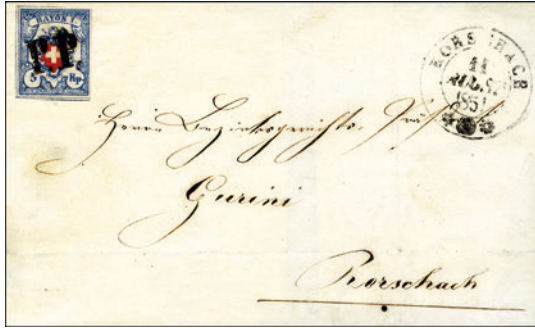 RAYON I
P.P.
5 Rp.
RORSCHACH
11
1851
Herrn Bezirksgerichts-
Gurini
Rorschach